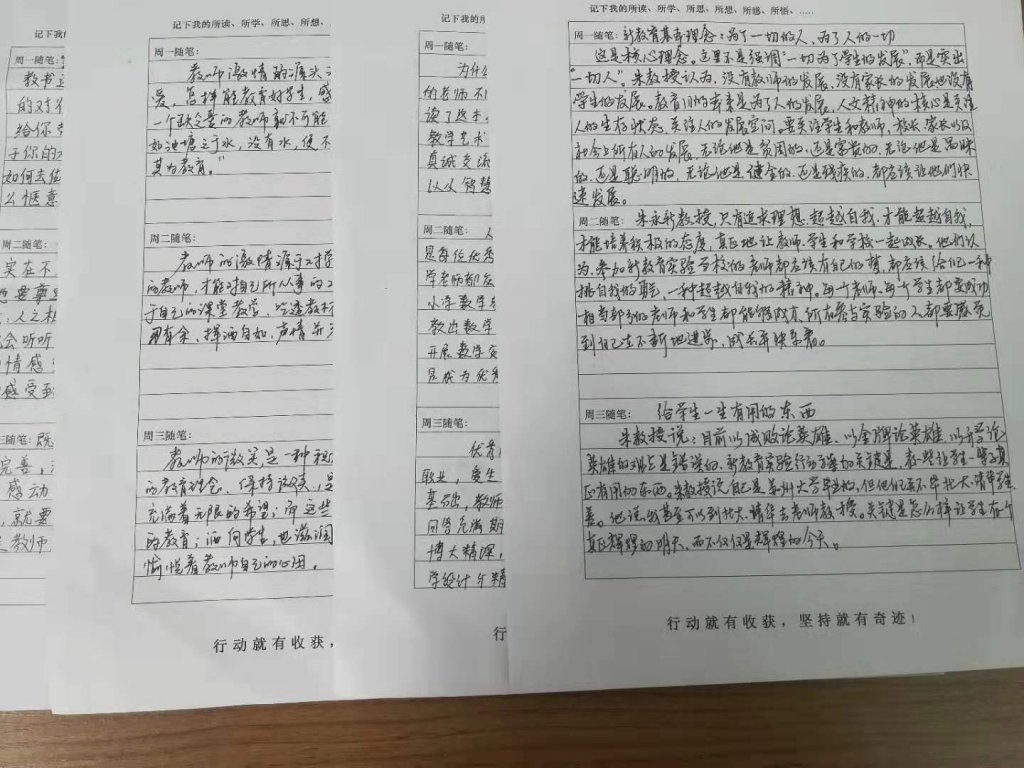 记下我
周一随笔：
教书
的对
给你
于你的
如何去
么惬意
周二随笔：
实在不
会听听
情感
感受到
三随笔：
完善，
感动
，就要
教师
记下我的所读、所学、所思、所想、
周一随笔：
教师激情的源头
爱，怎样能教育好学生，感
一个缺乏爱的教师
如池塘之于水，没有水，便不
其为教育。”
周二随笔：
教师的激情源于对学
的教师，才能对自己所从事的工
于自己的课堂教学，吃透教材
刃有余、挥洒自如、声情并
周三随笔：
教师的微笑，是一种
的教育理念、保持
充满着无限的希望；而这些
的教育；洒向学生，也滋润
愉悦着教师自己的心田。
行动就有收获，
记下我的所
周一随笔：
为什么
的老师不
读了这本
教学艺术
真诚交流
以从智慧
周二随笔：
是每位优秀
学老师都
小学数学
教出数学
开展数学
是成为优秀
周三随笔：
优秀
职业，爱生
基础，教师
问学充满期
博大精深，
学设计与精
行
记下我的所读、所学、所思、所想、所感、所悟、……
周一随笔：新教育基本理念：为了一切的人，为了人的一切
这是核心理念。这里不是强调“一切为了学生的发展”，而是突出
“一切人”。朱教授认为，没有教师的发展、没有家长的发展也没有
学生的发展。教育的要素是为了人的发展，人文精神的核心是关注
人的生存状态、关注人的发展空间。要关注学生和教师、校长、家长以及
社会上所有人的发展，无论他是贫困的，还是富贵的，无论他是愚昧
的，还是聪明的，无论他是健全的，还是残疾的，都应该让他们快
速发展。
周二随笔：朱永新教授，只有追求理想，超越自我，才能超越自我，
才能培养积极的态度，真正地让教师、学生和学校一起成长。他们认
为，参加新教育实验学校的老师都应该有自己的梦，都应该给自己一种
挑自我的勇气，一种超越自我的精神。每个老师、每个学生都要成功
相当部分的老师和学生都能够成功，所有参与实验的人都要感受
到自己在不断地进步，成长并快乐着。
周三随笔：给学生一生有用的东西
朱教授说：目前以成败论英雄、以金牌论英雄、以分论
英雄的观点是错误的，新教育实验行动方案的关键是，教些让学生一辈子真
正有用的东西。朱教授说自己是苏州大学毕业的，但他们并不毕北大、清华学生
差。他说，我甚至可以到北大、清华去当教授。关键是怎么样让学生有个
真正辉煌的明天，而不仅仅是辉煌的今天。
行动就有收获，坚持就有奇迹！